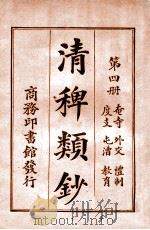 第四册
奄寺 外交 禮制
度支 屯漕 教育
清稗類鈔
商務印書館發行